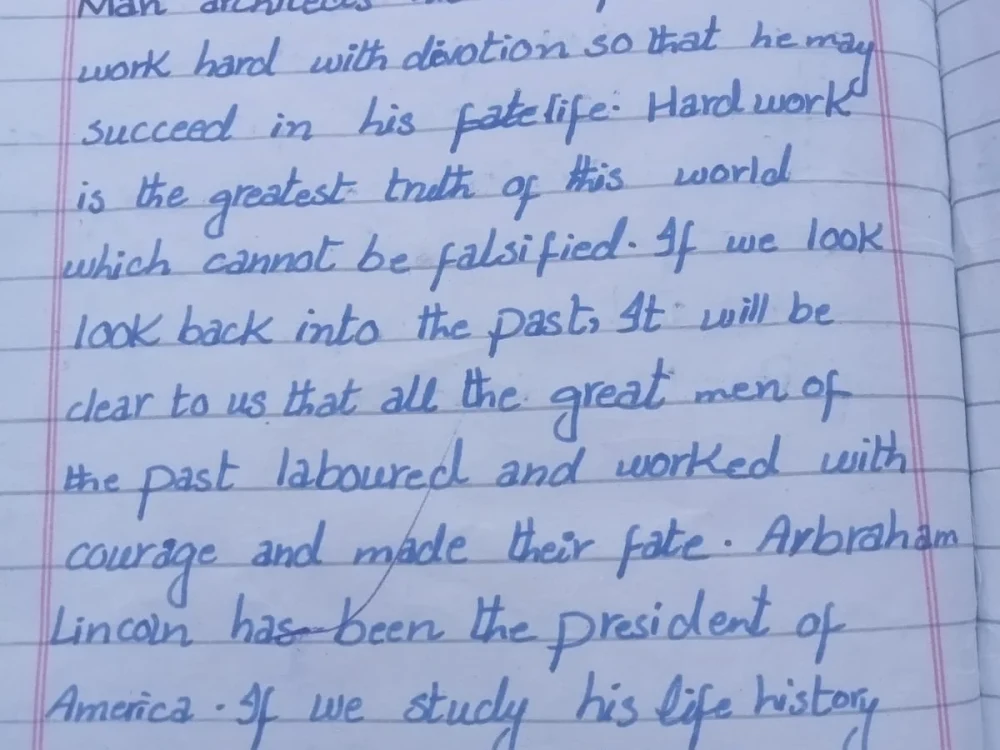 Man architects
work hard with devotion so that he may
succeed in his fate life. Hard work
is the greatest truth of this world
which cannot be falsified. If we look
look back into the past, It will be
clear to us that all the great men of
the past laboured and worked with
courage and made their fate. Arbraham
Lincoln has been the president of
America. If we study his life history